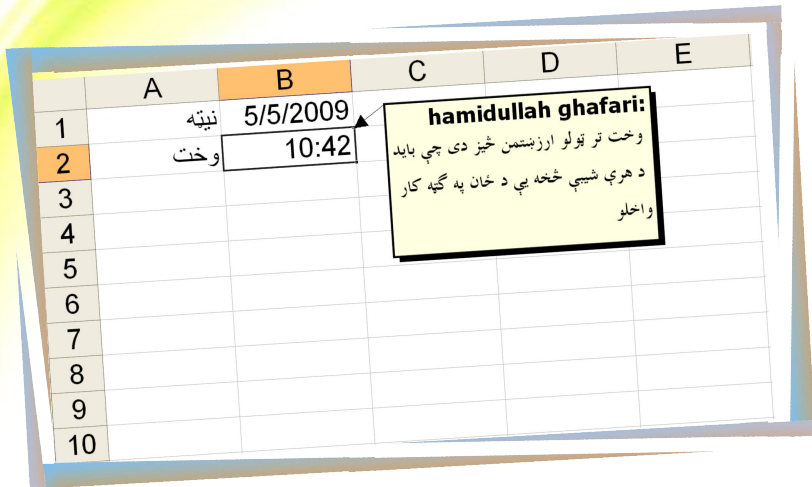 A B C D E
1 نیټه 5/5/2009
2 وخت 10:42
3
4
5
6
7
8
9
10
hamidullah ghafari:
وخت تر ټولو ارزښتمن څیز دی چې باید
د هرې شیبې څخه یې د ځان په گټه کار
واخلو